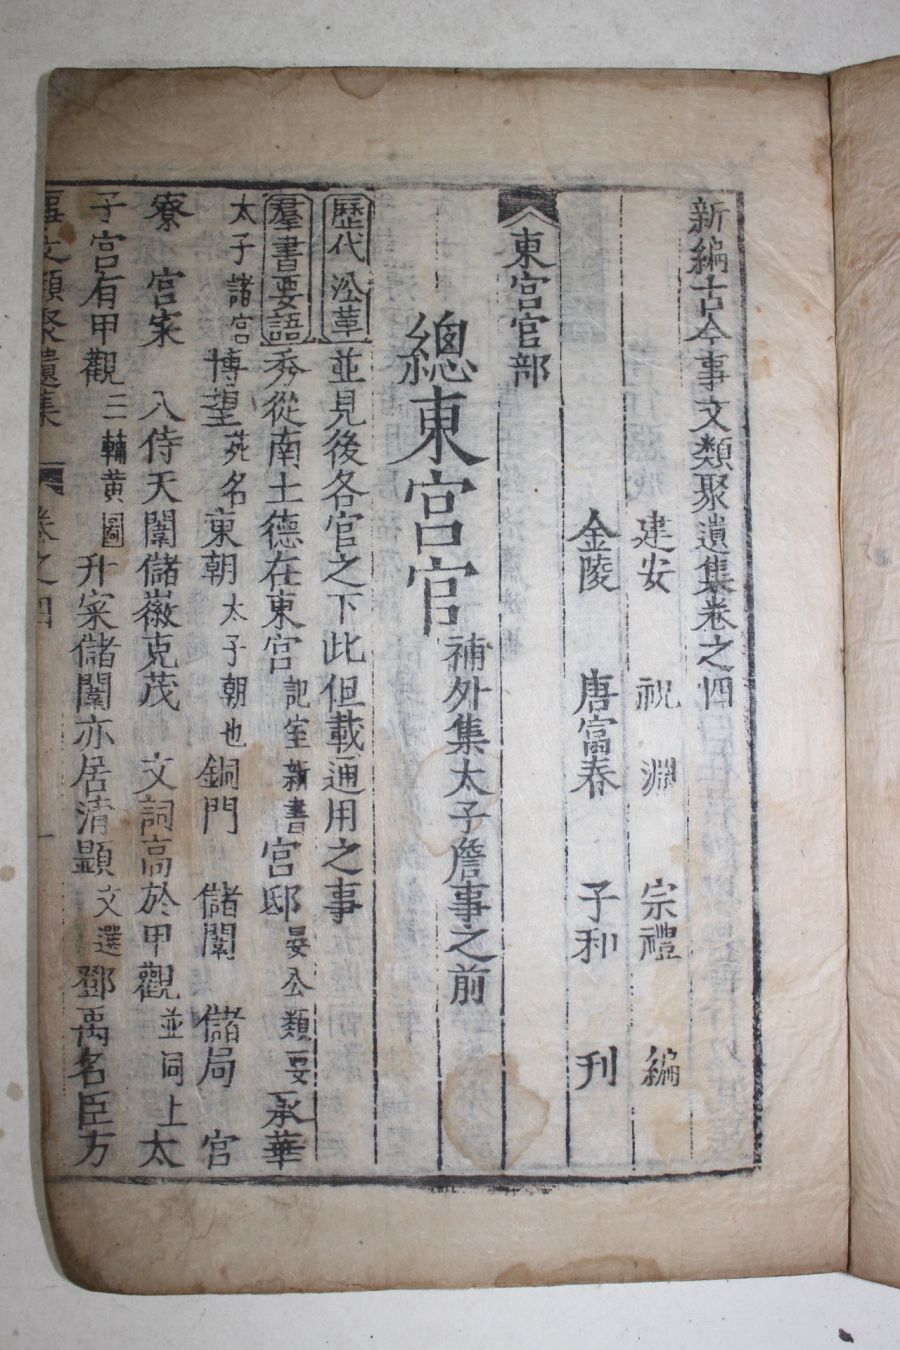 新編古今事文類聚遺集卷之四
建安 祝 淵 宗禮 編
金陵 唐富春 子和 刊
東宮官部
總東宮官 補外集太子詹事之前
歷代沿革 並見後各官之下此但載通用之事
羣書要語 秀從南土德在東宮 記室新書 宮邸 晏公類要 承華
太子諸宮 博望 苑名 東朝 太子朝也 銅門 儲闈 儲局 宮
寮 宮寀 入侍天闈儲徽克茂 文詞高於甲觀 並同上 太
子宮有甲觀 三輔黃圖 升寀儲闈亦居清顯 文選 鄧禹名臣方
事文類聚遺集 卷之四 一